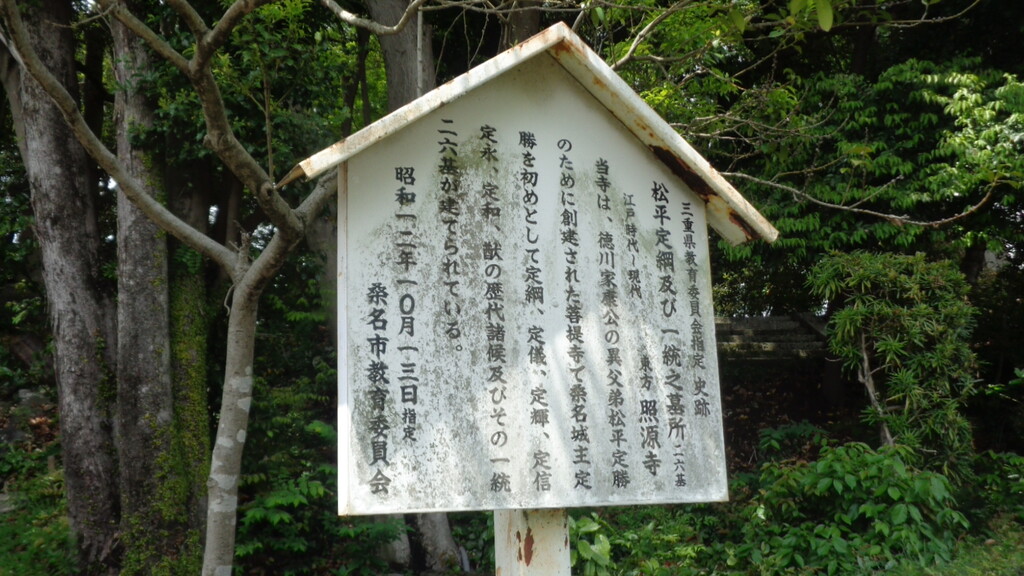 三重県教育委員会指定 史跡
松平定綱及び一統之墓所 二六基
江戸時代～現代 東方 照源寺
当寺は、徳川家康公の異父弟松平定勝
のために創建された菩提寺で桑名城主定
勝を初めとして定綱、定儀、定輝、定信
定永、定和、猷の歴代諸候及びその一統
二六基が建てられている。
昭和一二年一〇月一三日指定
桑名市教育委員会